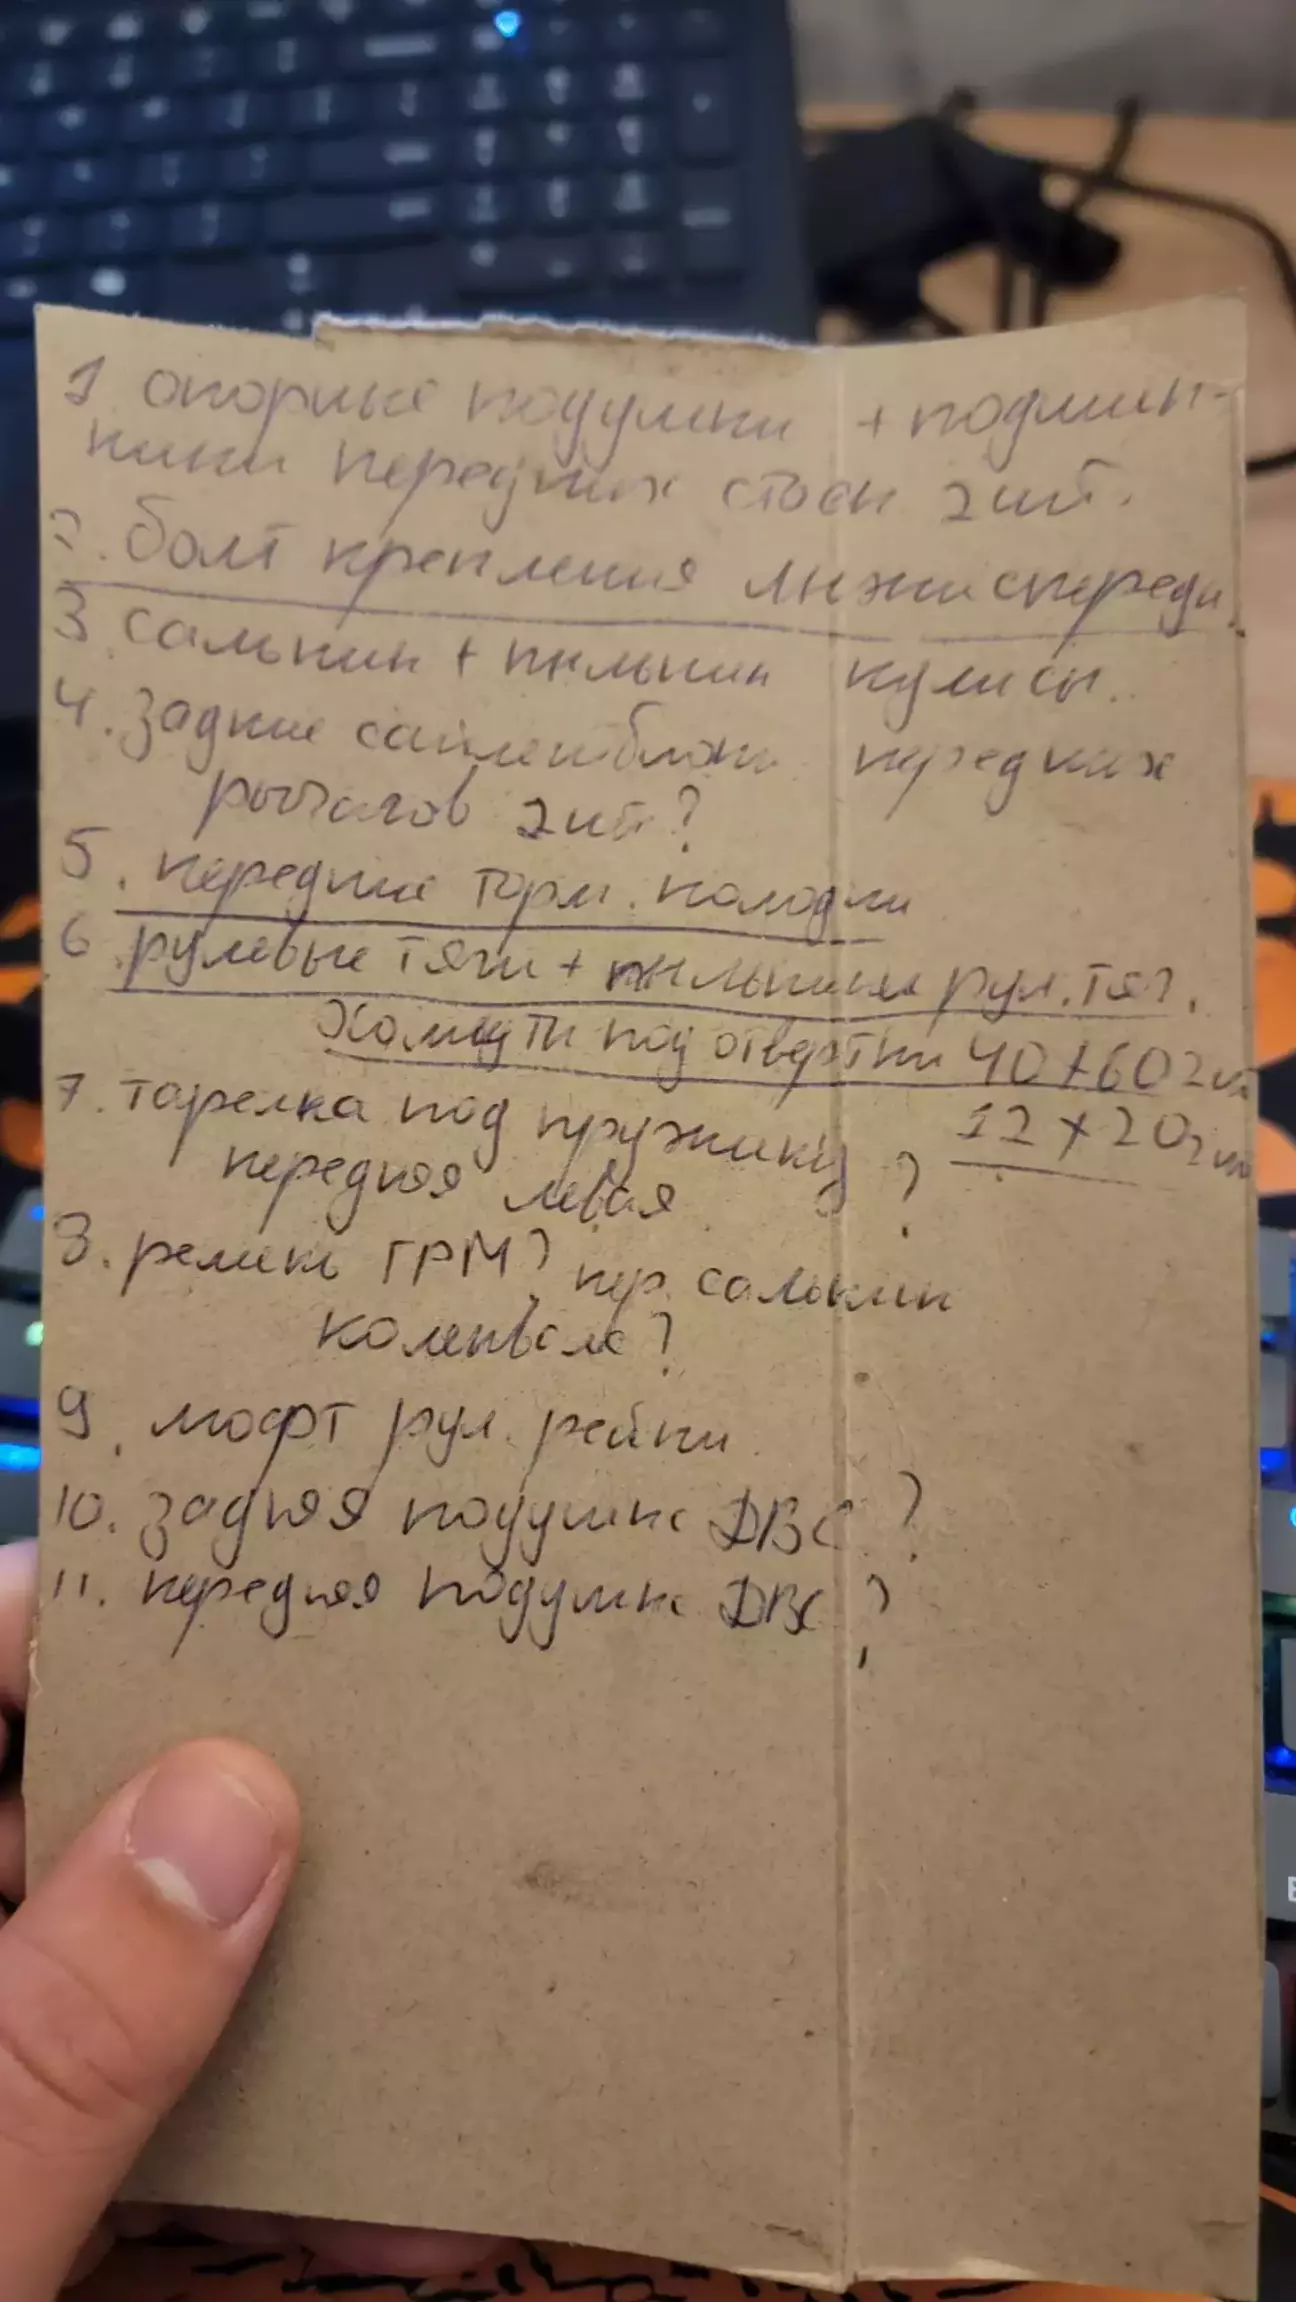 1 опорные подушки + подшип-
ники передних стоек 2шт.
2. болт крепления лыжи спереди
3 сальник + пыльник кулисы.
4. задние сайлентблоки передних
рычагов 2шт?
5. передние торм. колодки
6 рулевые тяги + пыльники рул. тяг.
Хомуты под отвертки 40х60 2шт
12х20 2шт
7. тарелка под пружину
передняя левая ?
8. ремень ГРМ? пер. сальник
коленвала?
9. муфт рул. рейки
10. задняя подушка ДВС ?
11. передняя подушка ДВС ?